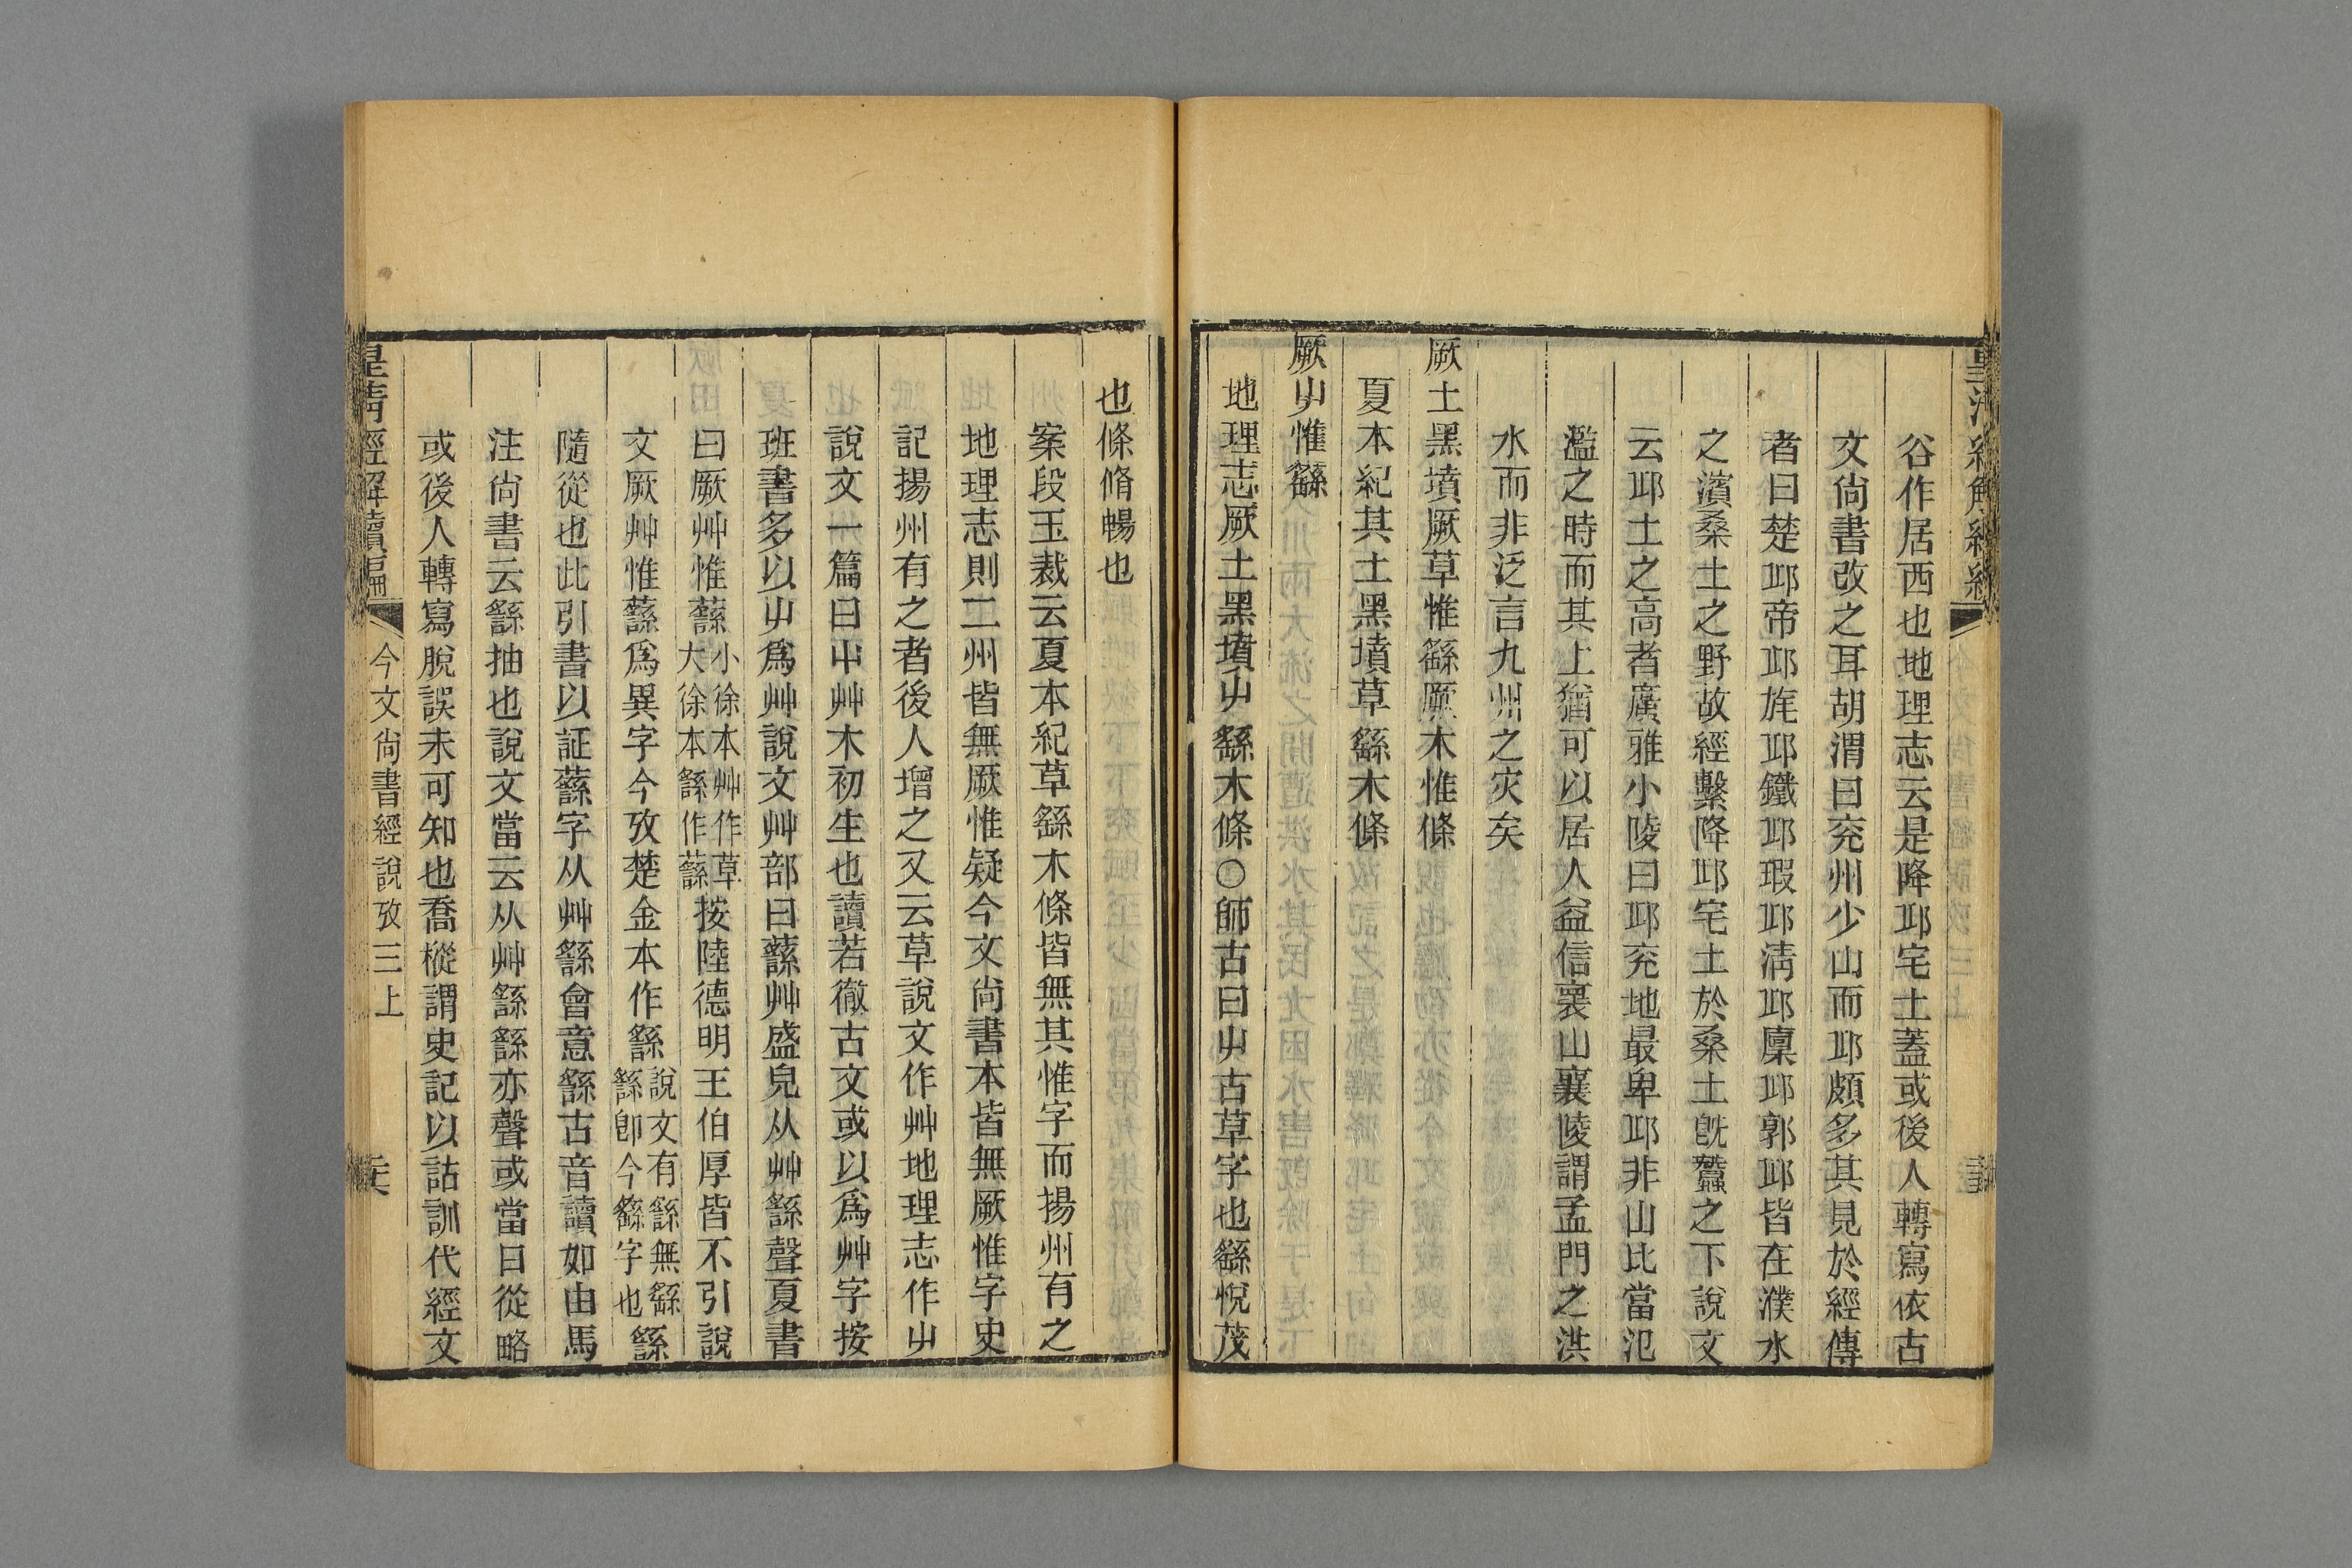 谷作居西也地理志云是降邱宅土蓋或後人轉寫依古
文尙書改之耳胡渭曰兖州少山而邱頗多其見於經傳
者曰楚邱帝邱旄邱鐵邱瑕邱淸邱廩邱郭邱皆在濮水
之濱桑土之野故經繫降邱宅土於桑土旣蠶之下說文
云邱土之高者廣雅小陵曰邱兖地最卑邱非山比當氾
濫之時而其上猶可以居人益信襄山襄陵謂孟門之洪
水而非泛言九州之灾矣
厥土黑墳厥草惟繇厥木惟條
夏本紀其土黑墳草繇木條
厥屮惟繇
地理志厥土黑墳屮繇木條○師古曰屮古草字也繇悅茂
也條脩暢也
案段玉裁云夏本紀草繇木條皆無其惟字而揚州有之
地理志則二州皆無厥惟疑今文尙書本皆無厥惟字史
記揚州有之者後人增之又云草說文作艸地理志作屮
說文一篇曰屮艸木初生也讀若徹古文或以爲艸字按
班書多以屮爲艸說文艸部曰蘨艸盛皃从艸繇聲夏書
曰厥艸惟蘨小徐本艸作草大徐本繇作蘨按陸德明王伯厚皆不引說
文厥艸惟蘨爲異字今攷楚金本作繇說文有繇無繇繇卽今繇字也繇
隨從也此引書以証蘨字从艸繇會意繇古音讀如由馬
注尙書云繇抽也說文當云从艸繇繇亦聲或當曰從略
或後人轉寫脫誤未可知也喬樅謂史記以詁訓代經文
皇淸經解續編
今文尙書經說攷三上